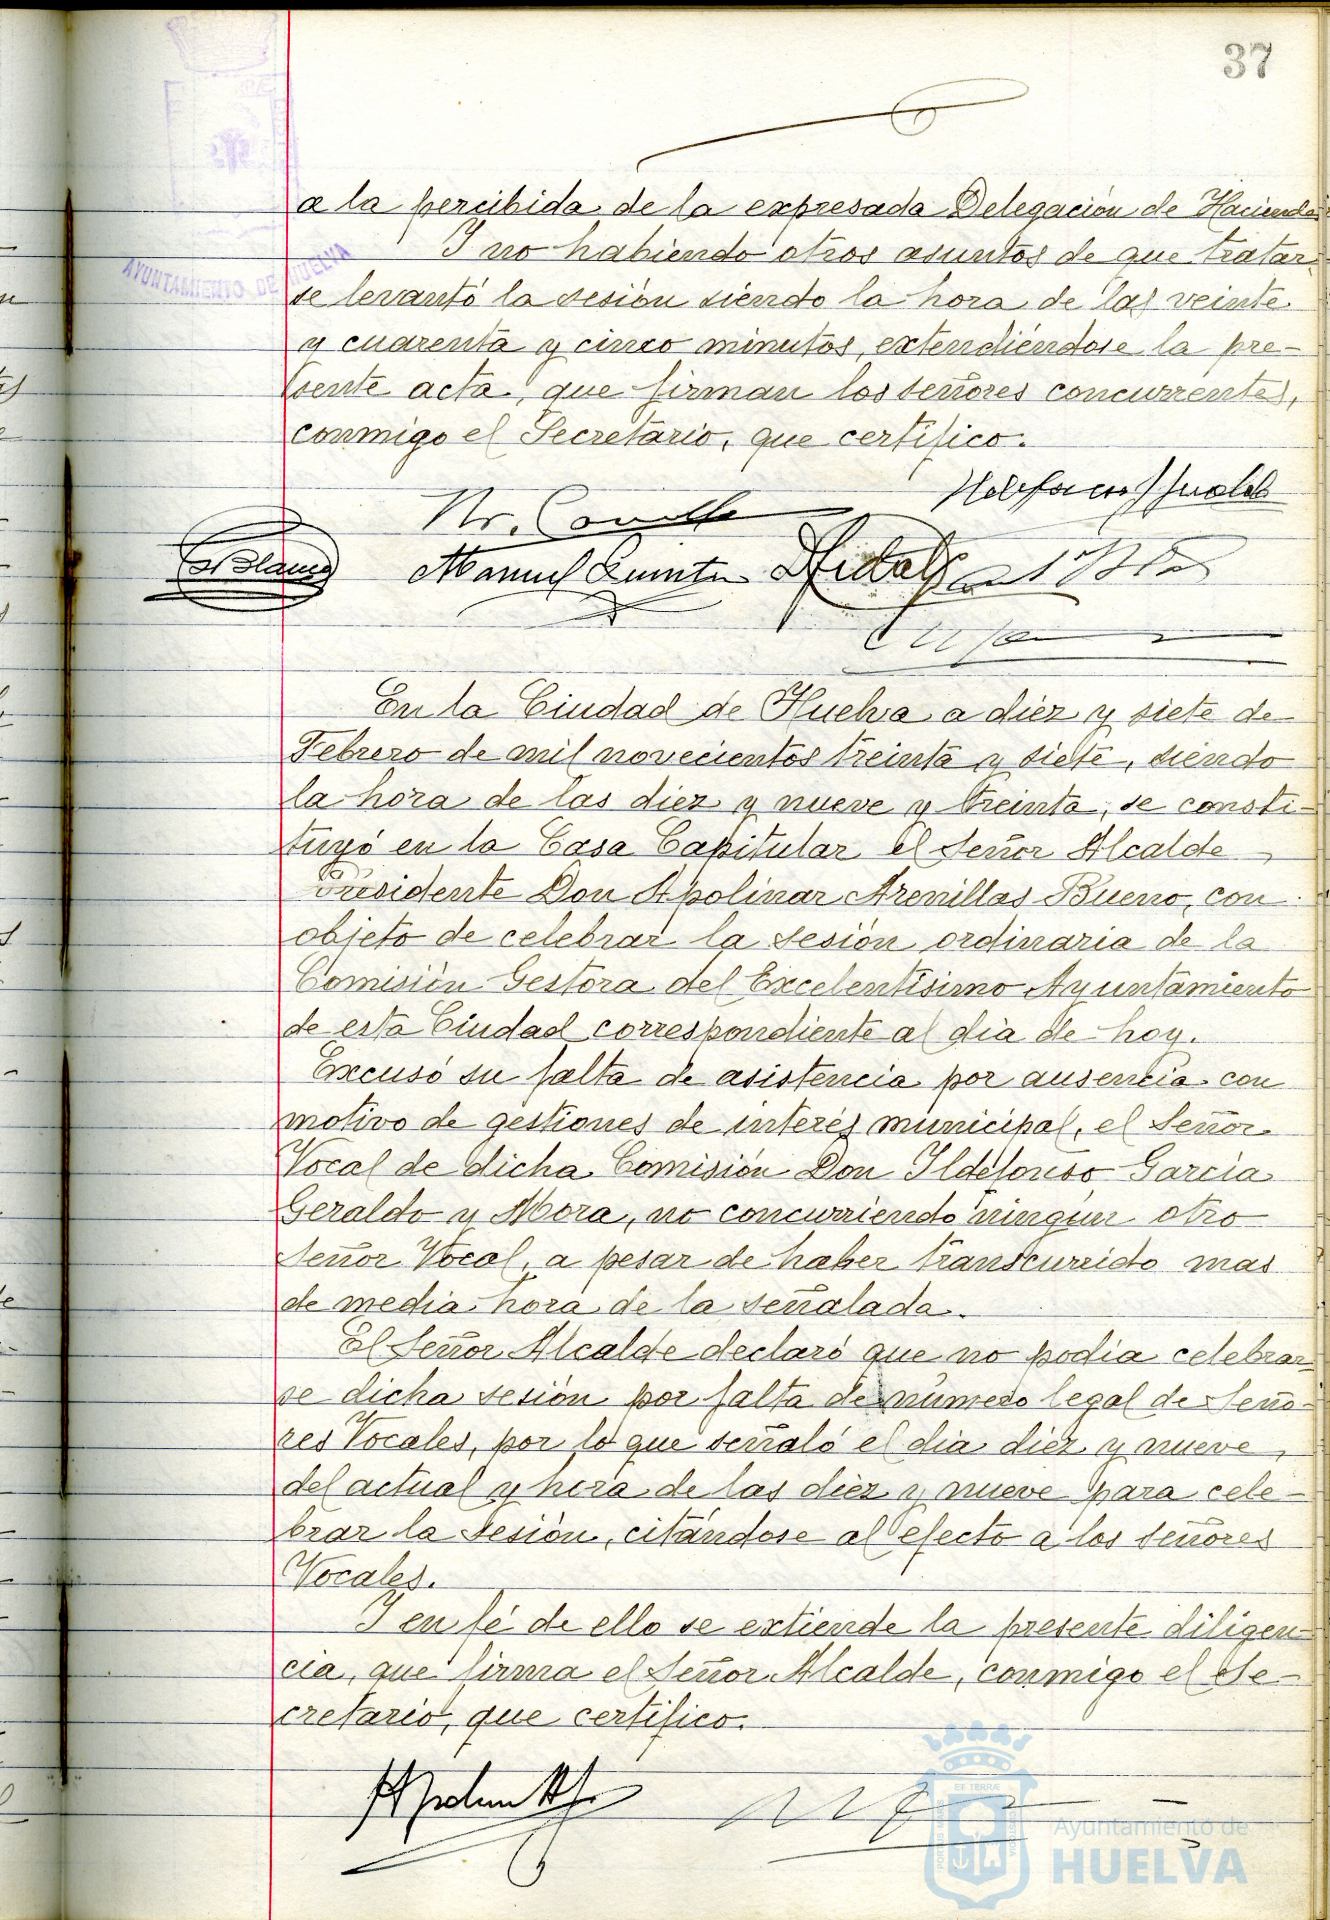 37
a la percibida de la expresada Delegación de Hacienda
Y no habiendo otros asuntos de que tratar
se levantó la sesión siendo la hora de las veinte
y cuarenta y cinco minutos, extendiéndose la pre-
sente acta, que firman los señores concurrentes,
conmigo el Secretario, que certifico.
AYUNTAMIENTO DE HUELVA
Blanco
Manuel
En la Ciudad de Huelva a diez y siete de
Febrero de mil novecientos treinta y siete, siendo
la hora de las diez y nueve y treinta, se consti-
tuyó en la Casa Capitular el Señor Alcalde
Presidente Don Apolinar Arenillas Bueno, con
objeto de celebrar la sesión ordinaria de la
Comisión Gestora del Excelentísimo Ayuntamiento
de esta Ciudad correspondiente al día de hoy.
Excusó su falta de asistencia por ausencia con
motivo de gestiones de interés municipal, el Señor
Vocal de dicha Comisión Don Ildefonso García
Geraldo y Mora, no concurriendo ningún otro
Señor Vocal, a pesar de haber transcurrido mas
de media hora de la señalada.
El Señor Alcalde declaró que no podía celebrar-
se dicha sesión por falta de número legal de Seño-
res Vocales, por lo que señaló el día diez y nueve,
del actual y hora de las diez y nueve para cele-
brar la sesión, citándose al efecto a los señores
Vocales.
Y en fé de ello se extiende la presente diligen-
cia, que firma el Señor Alcalde, conmigo el Se-
cretario, que certifico.
Ayuntamiento de
HUELVA